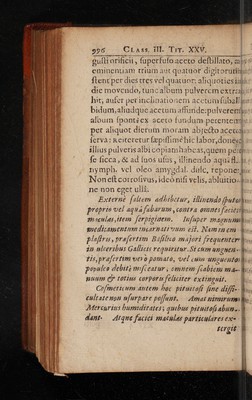 996 CLASS. III. TIT. XXV.
gusti orificii, superfuso aceto destillato, ad
eminentiam trium aut quatuor digitorum
stent per dies tres vel quatuor: aliquoties in
die movendo, tunc album pulverem extra-
hit, aufer per inclinationem acetum
bidum, aliudque acetum affunde: pulverem
album sponte ex aceto fundum petentem
per aliquot dierum moram abjecto aceto
serva: & iteretur sæpissime hic labor, donec
illius pulveris albi copiam habeas, quem per
se sicca, & ad suos usus, illinendo aqua
nymph. vel oleo amygdal. dulc. repone:
Non est corrosivus, ideo nisi velis, ablutio-
ne non eget ulla.
Externè saltem adhibetur, illinendo sputo
proprio vel aquâ fabarum, contra omnes faciei
maculas, item serpiginem. Insuper magnum
medicamentum incarnativum est. Nam in em-
plastris, præsertim Basilico majori frequenter
in ulceribus Gallicis requiritur. Si cum unguen-
tis, præsertim verò pomato, vel cum unguento
populeo debitè misceatur, omnem scabiem ma-
nuum & totius corporis feliciter extinguit.
Cosmeticum autem hoc pituitosi sine diffi-
cultate non usurpare possunt. Amat nimirum
Mercurius humiditates, quibus pituitosi abun-
dant. Atque faciei maculas particulares ex-
tergit